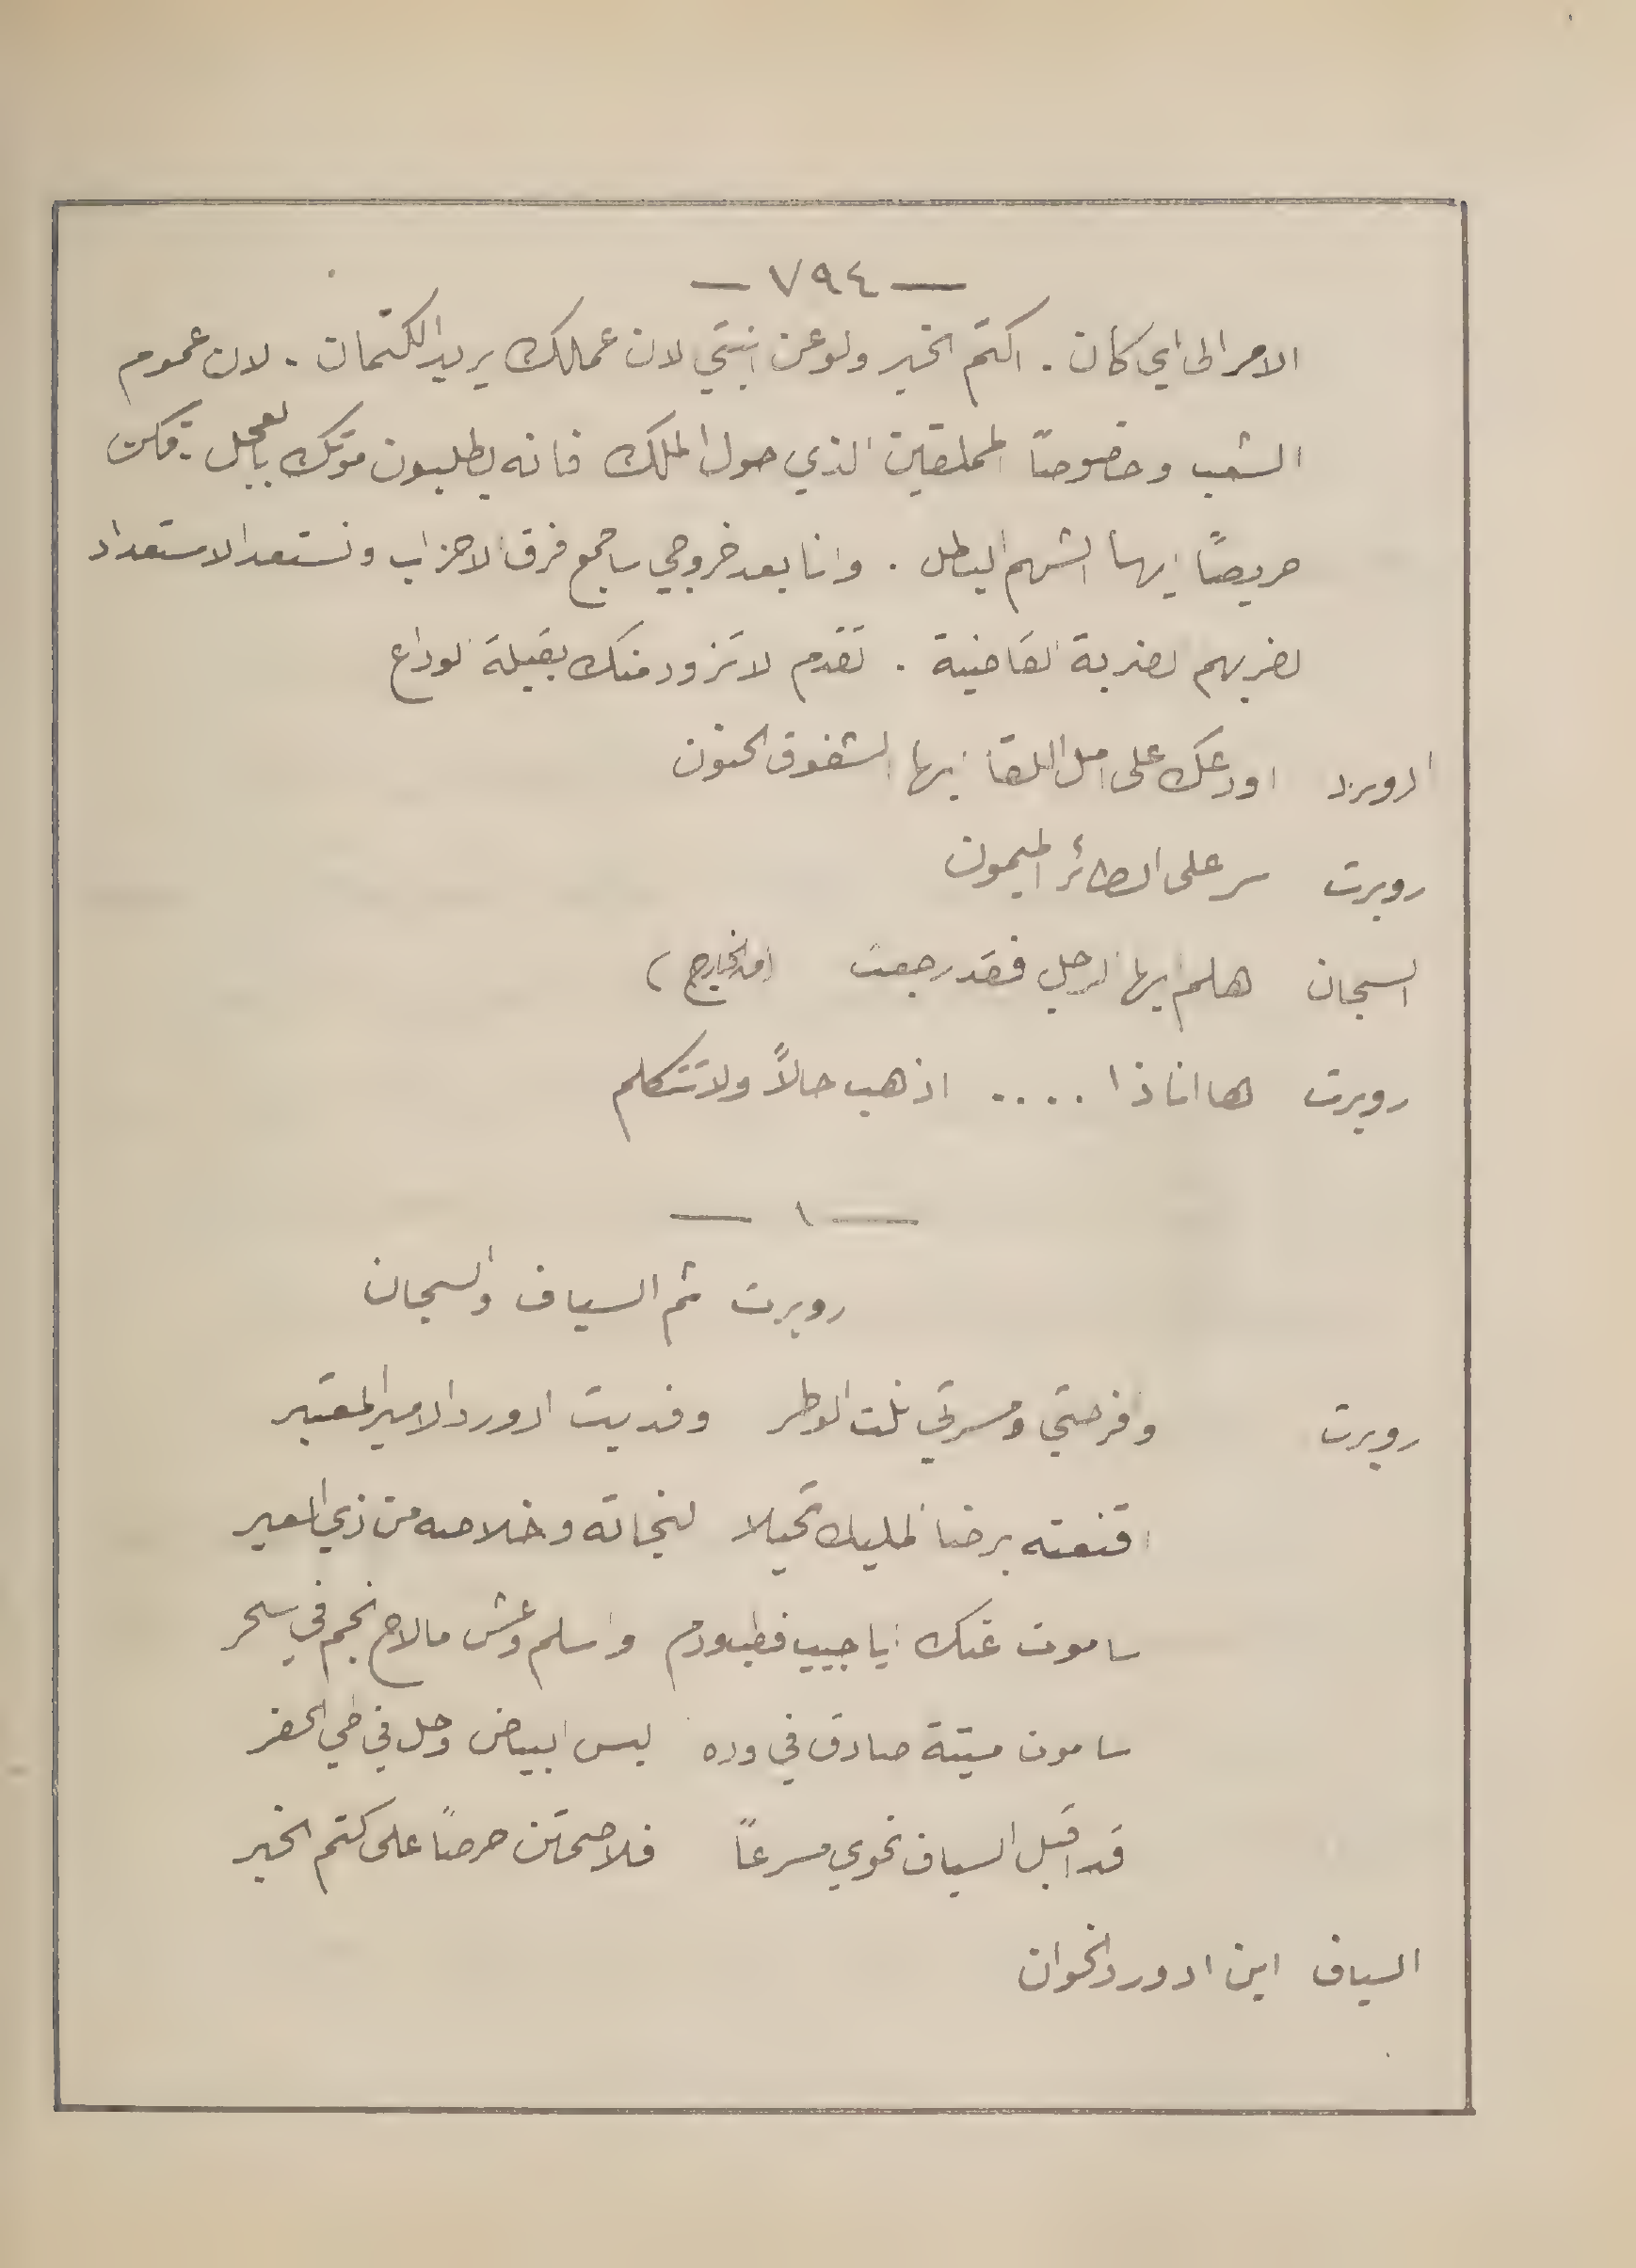 — ٧٩٤ —
الامر الى اي كان . اكتم الخبر ولو عن ابنتي لان عملك يريد الكتمان . لان عموم
الشعب وخصوصاً المملقين الذي حول الملك فانه يطلبون موتك بالعجل . فكن
حريصاً ايها الشهم البطل . وانا بعد خروجي ساجمع فرق الاحزاب ونستعد الاستعداد
لضربهم لضربة القاضية . تقدم لاتزود منك بقبلة الوداع
ادورد اودعك على امل اللقا ايها الشفوق الحنون
روبرت سر على الطائر الميمون
السجان هلم ايها الرجل فقد رجعت (من الخارج)
روبرت ها انا ذا .... اذهب حالاً ولا تتكلم
— ١ —
روبرت ثم السياف والسجان
روبرت وافرحتي ومسرتي نلت الوطر وفديت ادورد الامير المعتبر
اقنعته برضا المليك تحيلا لنجاته وخلاصه من ذي العبر
ساموت عنك ايا حبيب فطب ودم واسلم وعش مالاح نجم في سحر
ساموت ميتة صادق في وده لبس البياض وحل في طي الحفر
قد اقبل السياف نحوي مسرعاً فلاصمتن حرصاً على كتم الخبر
السياف اين ادورد الخوان